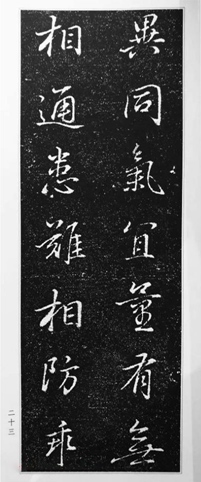 異同氣宜量有無
相通患難相防
二十三